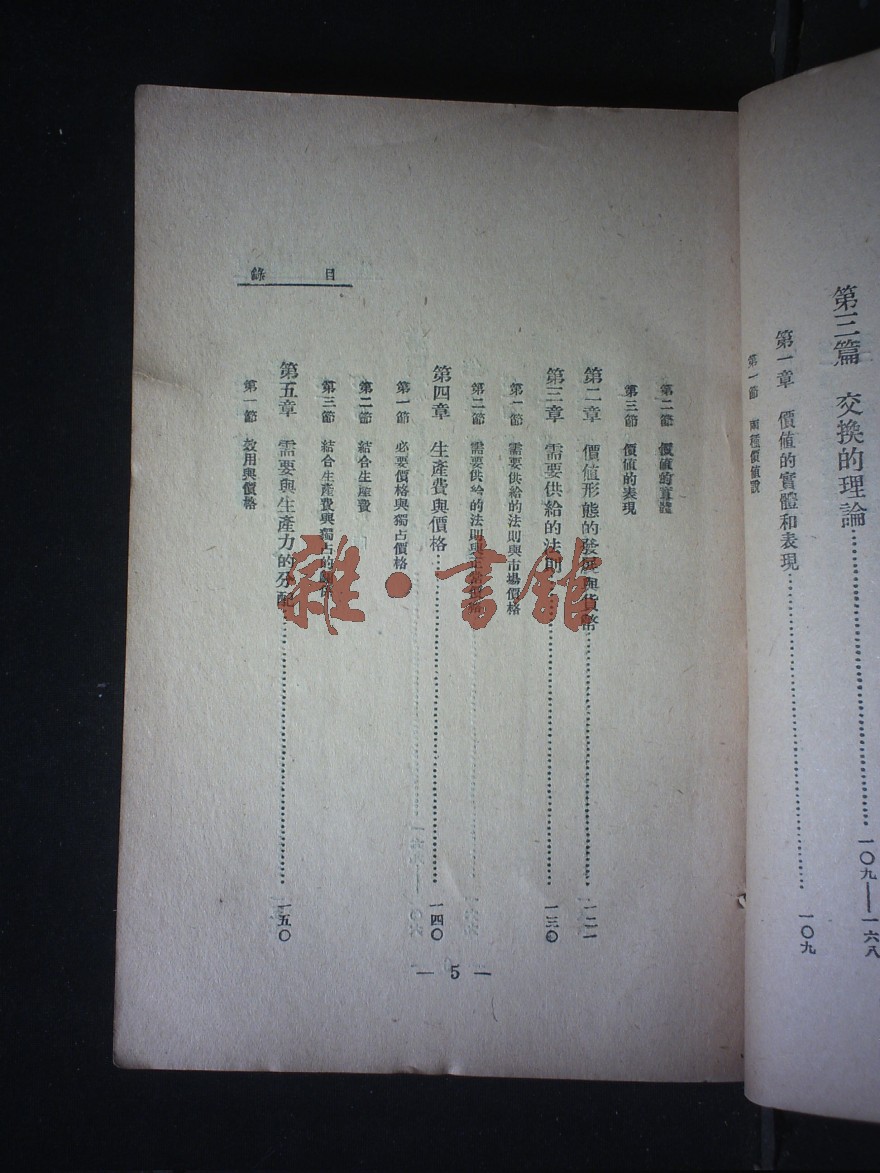 第三篇 交換的理論……一〇九——一六八
第一章 價值的實體和表現……一〇九
第一節 兩種價值說
目錄
第二節 價值的實體
第三節 價值的表現
第二章 價值形態的發展與貨幣……一二一
第三章 需要供給的法則……一三〇
第一節 需要供給的法則與市場價格
第二節 需要供給的法則與正常價格
第四章 生產費與價格……一四〇
第一節 必要價格與獨占價格
第二節 結合生產費
第三節 結合生產費與獨占的
第五章 需要與生產力的分配……一五〇
第一節 效用與價格
— 5 —
雜·書館